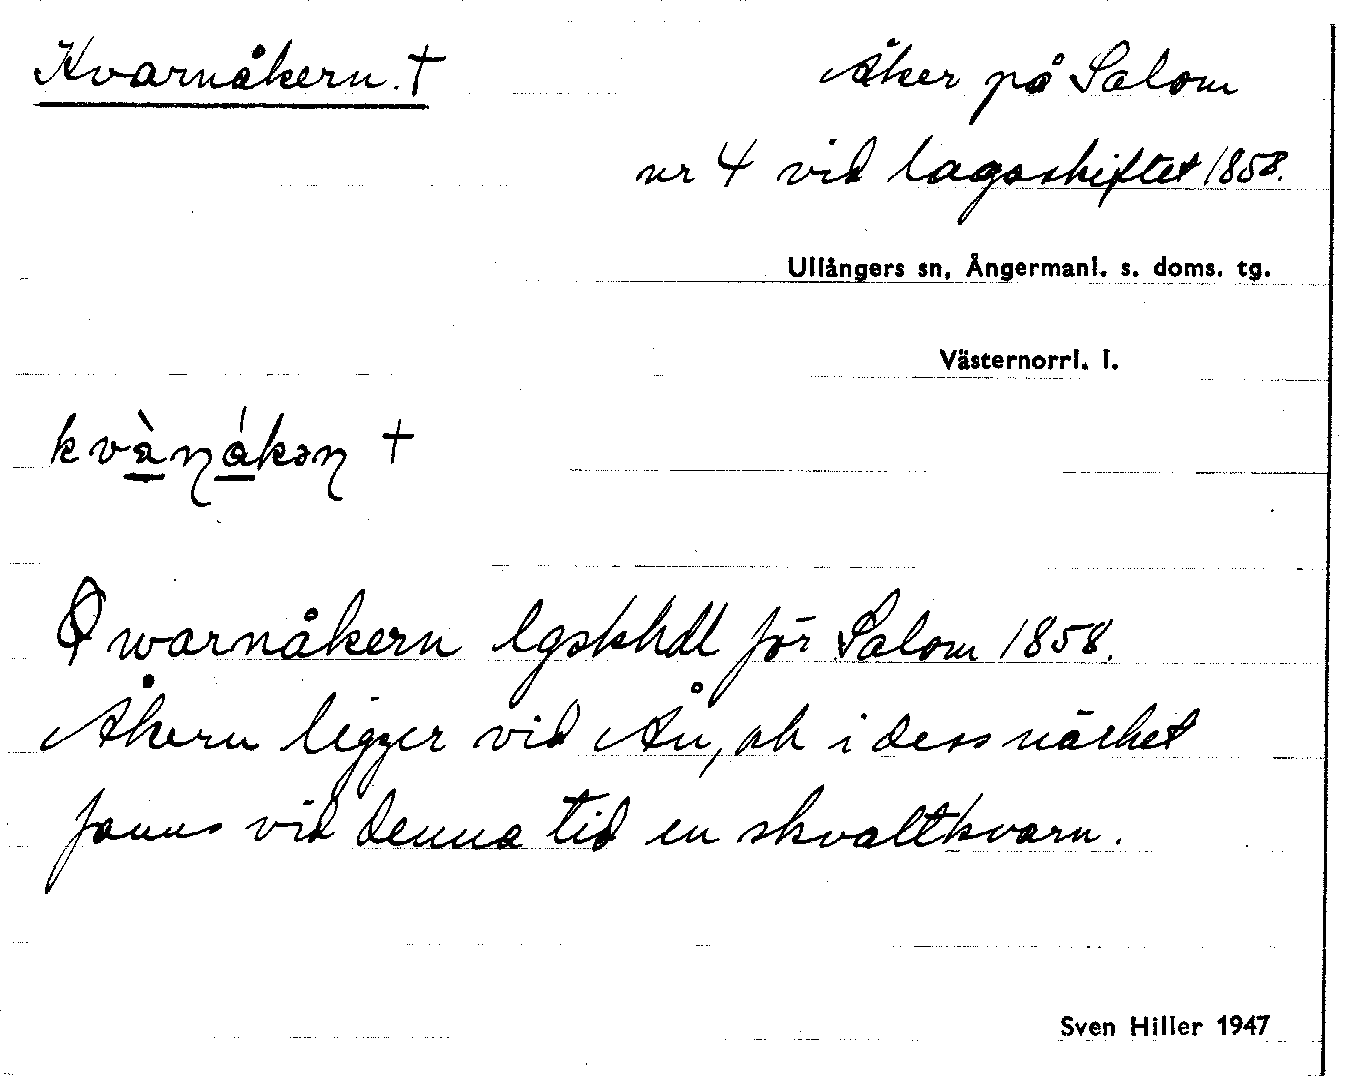 Kvarnåkern. †
Åker på Salom
nr 4 vid lagaskiftet 1858.
Ullångers sn, Ångermanl. s. doms. tg.
Västernorrl. l.
kvàɳákəɳ †
Qwarnåkern lgskhdl för Salom 1858.
Åkern ligger vid Ån, ok i dess närhet
fanns vid denna tid en skvaltkvarn.
Sven Hiller 1947